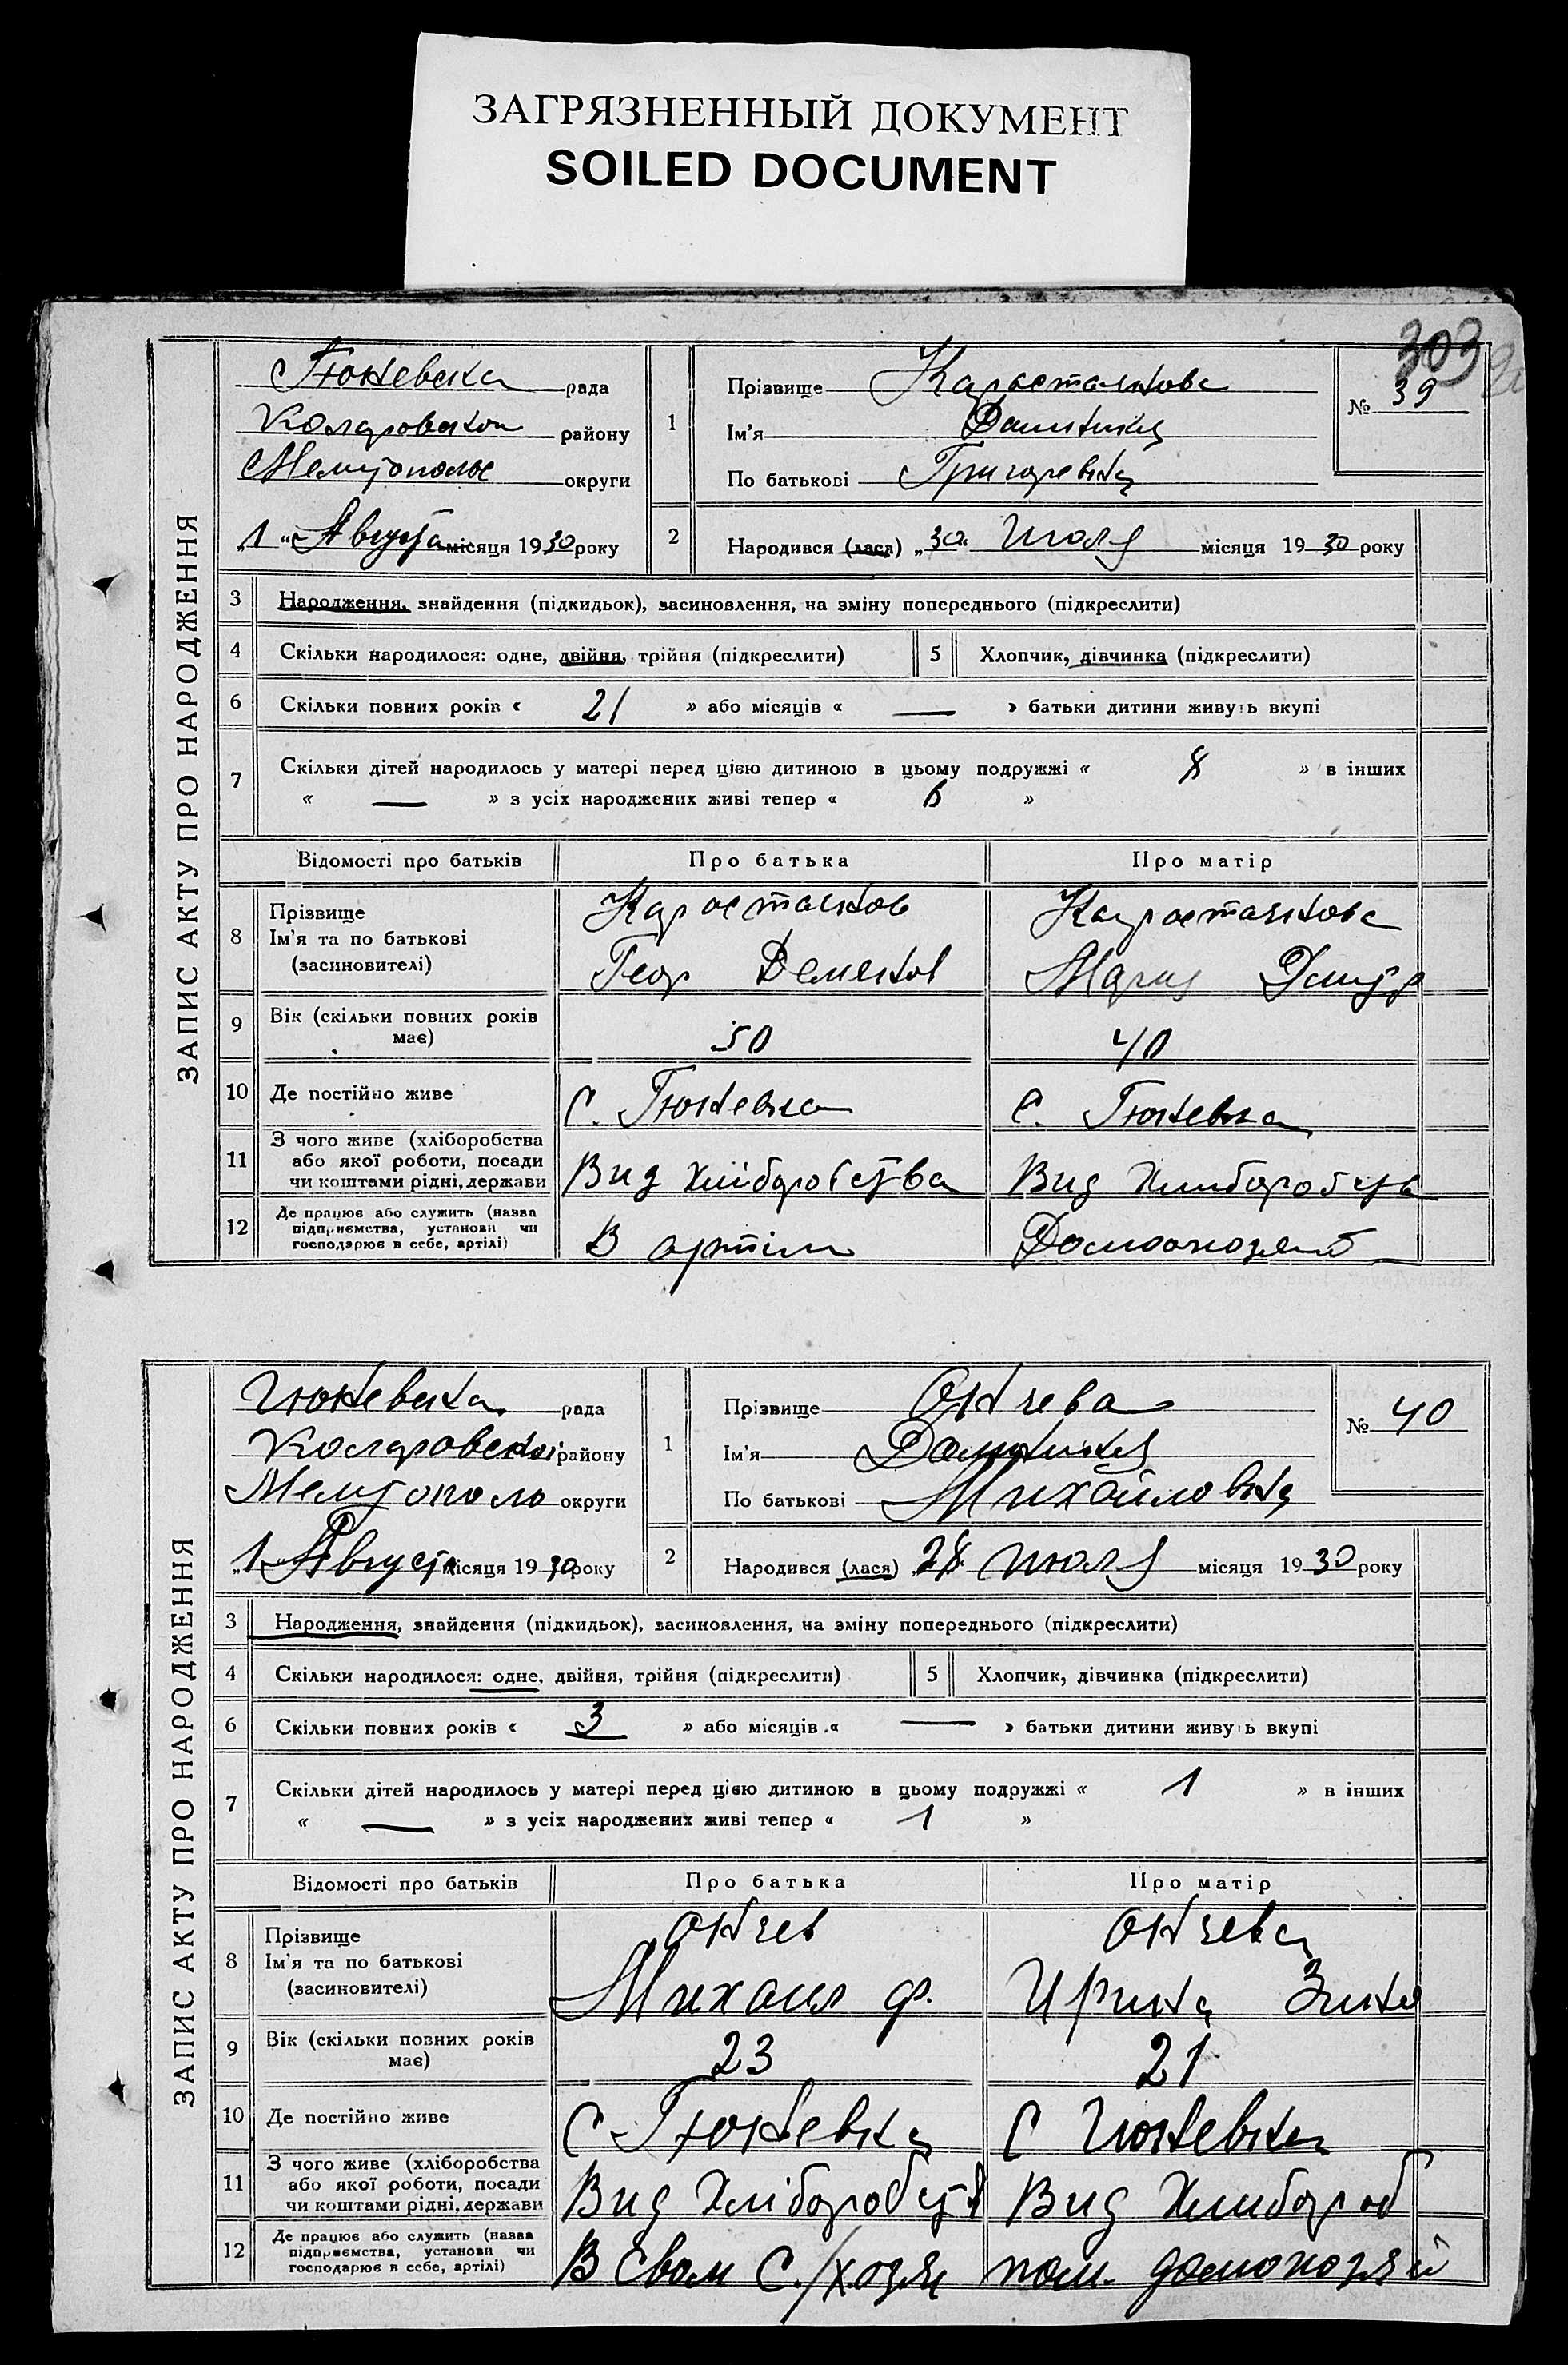 ЗАГРЯЗНЕННЫЙ ДОКУМЕНТ
SOILED DOCUMENT
303
ЗАПИС АКТУ ПРО НАРОДЖЕННЯ
Гюневска рада
Коларовскои району
Мелитополь округи
„1“ Августа місяця 1930 року
1
Прізвище Карастанова
Ім'я
По батькові Григоревна
№ 39
2
Народився (лася) „30“ Июля місяця 1930 року
3 Народження, знайдення (підкидьок), засиновлення, на зміну попереднього (підкреслити)
4 Скільки народилося: одне, двійня, трійня (підкреслити) 5 Хлопчик, дівчинка (підкреслити)
6 Скільки повних років « 21 » або місяців « — » батьки дитини живуть вкупі
7 Скільки дітей народилось у матері перед цією дитиною в цьому подружжі « 8 » в інших
« — » з усіх народжених живі тепер « 6 »
Відомості про батьків Про батька Про матір
8 Прізвище
Ім'я та по батькові
(засиновителі)
Карастанов
Геор Деменков
Карастанова
Мария Дмитр
9 Вік (скільки повних років має) 50 40
10 Де постійно живе С. Гюневка С. Гюневка
11 З чого живе (хліборобства
або якої роботи, посади
чи коштами рідні, держави
Вид хліборобства Вид Хлибороб
12 Де працює або служить (назва
підприємства, установи чи
господарює в себе, артілі)
В артіли Домохозяй
ЗАПИС АКТУ ПРО НАРОДЖЕННЯ
Гюневска рада
Коларовской району
Мелитополь округи
„1 Августа місяця 1930 року
1
Прізвище Янчева
Ім'я
По батькові Михайловна
№ 40
2
Народився (лася) „28 июля місяця 1930 року
3 Народження, знайдення (підкидьок), засиновлення, на зміну попереднього (підкреслити)
4 Скільки народилося: одне, двійня, трійня (підкреслити) 5 Хлопчик, дівчинка (підкреслити)
6 Скільки повних років « 3 » або місяців « — » батьки дитини живуть вкупі
7 Скільки дітей народилось у матері перед цією дитиною в цьому подружжі « 1 » в інших
« — » з усіх народжених живі тепер « 1 »
Відомості про батьків Про батька Про матір
8 Прізвище
Ім'я та по батькові
(засиновителі)
Янчев
Михаил Ф.
Янчева
Ирина Зино
9 Вік (скільки повних років має) 23 21
10 Де постійно живе С Гюневка С Гюневка
11 З чого живе (хліборобства
або якої роботи, посади
чи коштами рідні, держави
Вид Хліборобств Вид Хлибороб
12 Де працює або служить (назва
підприємства, установи чи
господарює в себе, артілі)
В свом С./хозяй пом. домохозяй